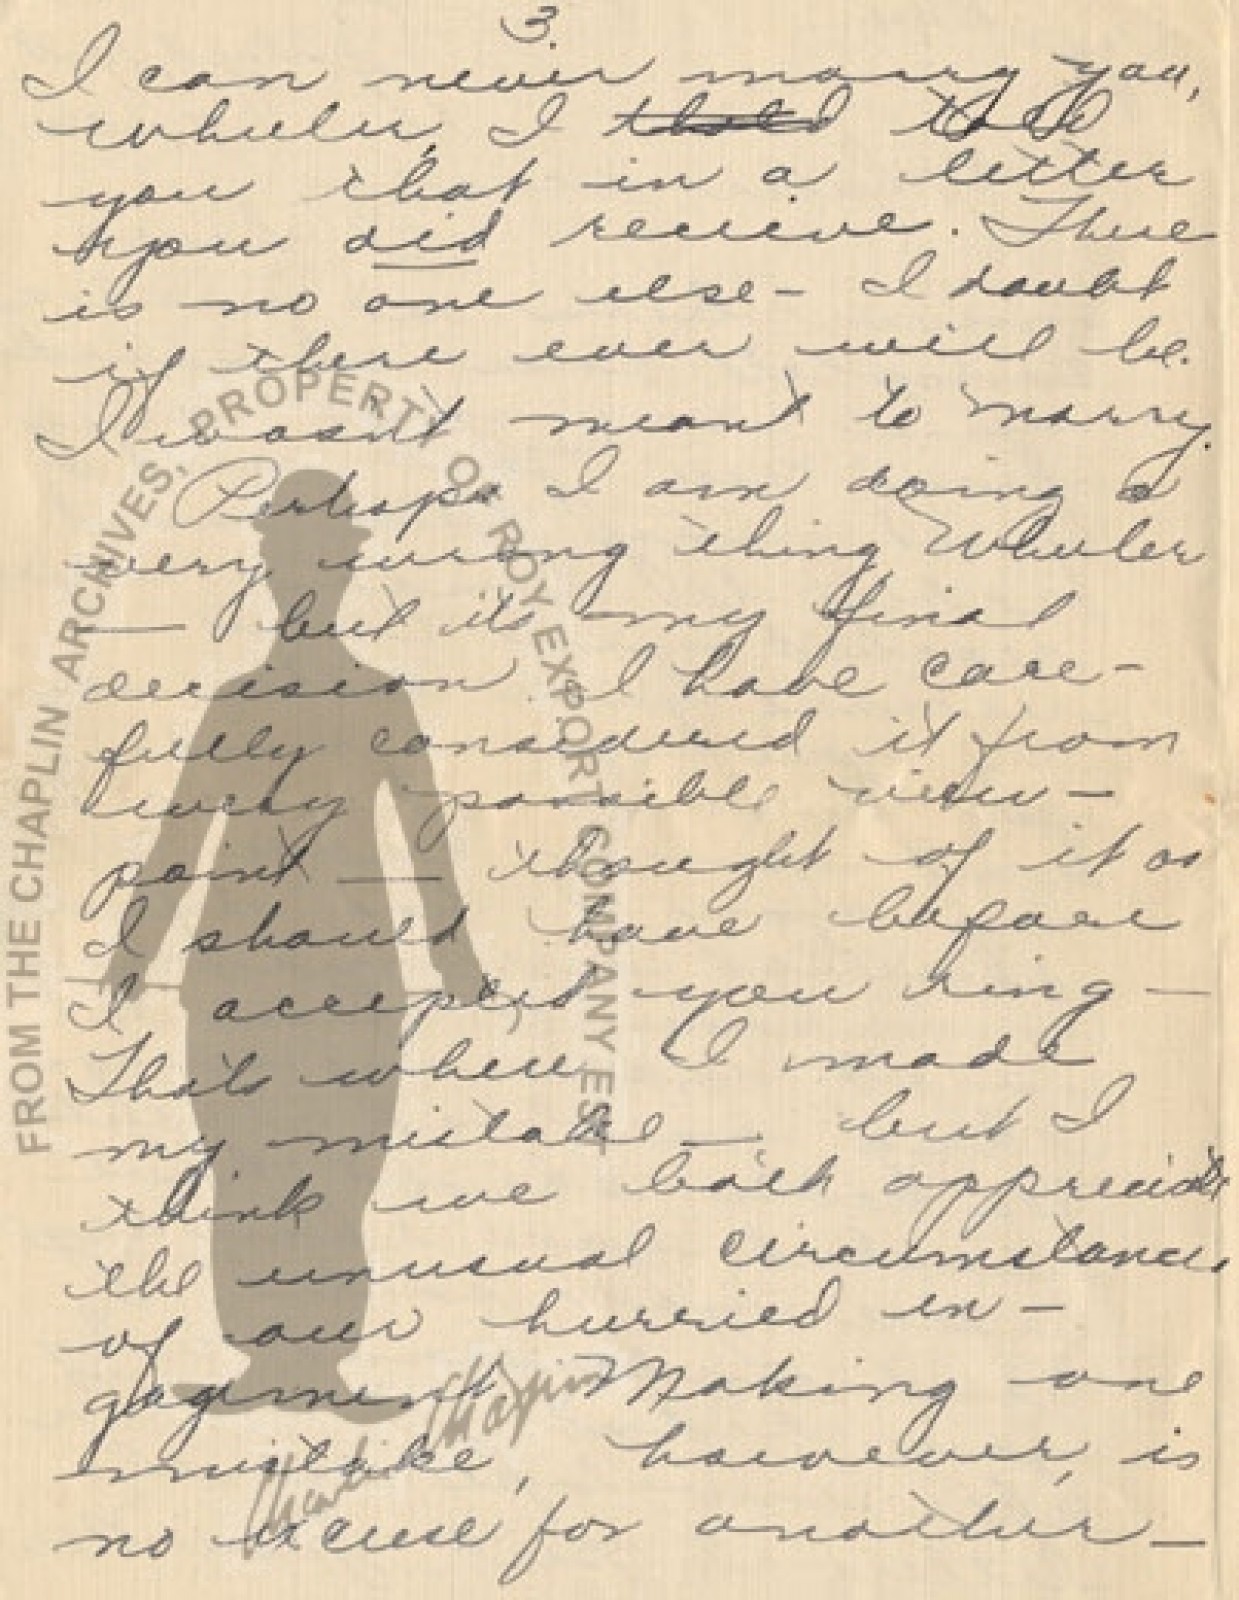 3.
I can never marry you,
Wheeler, I thold told
you that in a letter
you did recieve. There
is no one else – I doubt
if there ever will be.
I wasn't meant to marry.
Perhaps I am doing a
very wrong thing Wheeler
— but its my final
decision. I have care-
fully considered it from
every possible view-
point — thought of it as
I should have before
I accepted you ring —
Thats where I made
my mistake — but I
think we both appreciate
the unusual circumstances
of our hurried en-
gagement. Making one
mistake, however, is
no excuse for another —
FROM THE CHAPLIN ARCHIVES, PROPERTY OF ROY EXPORT COMPANY EST
Charlie Chaplin